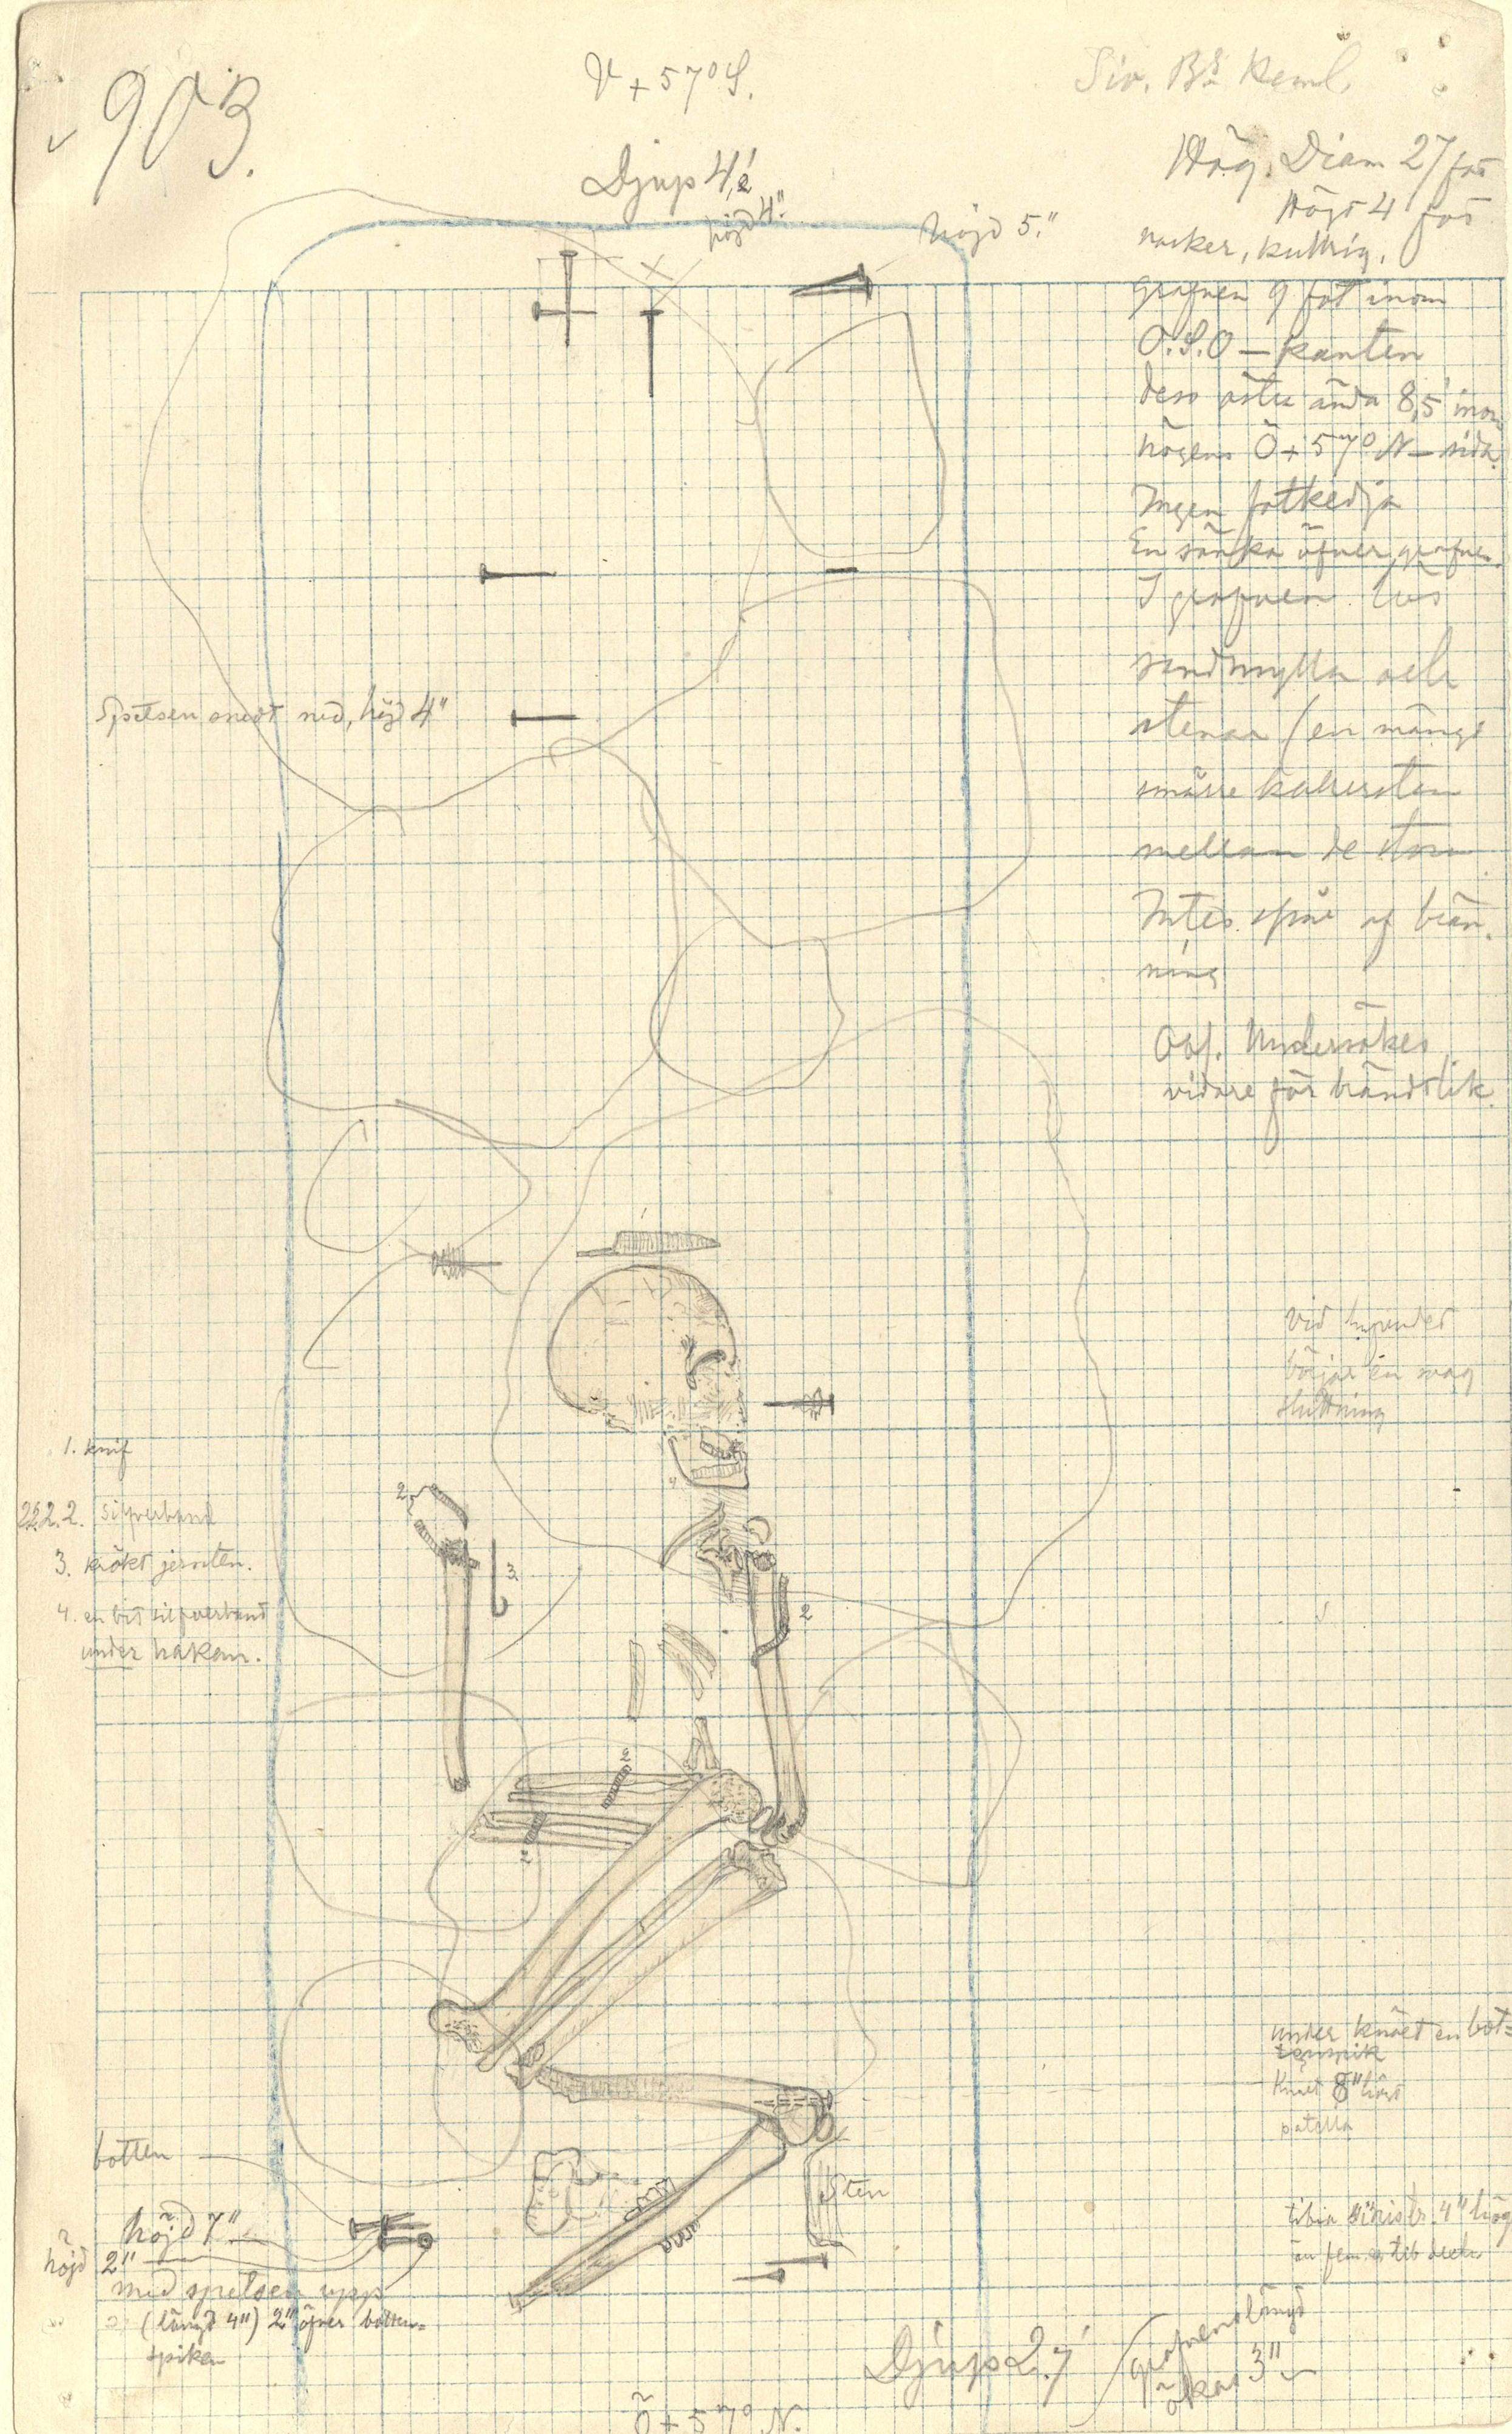 903.
V + 57° S.
Djup 4,2'
höjd 4".
höjd 5."
Hög. Diam 27 fot
Höjd 4 fot
vacker, kullrig.
grafven 9 fot inom
O.S.O – kanten
dess östra ända 8,5' inom
högens Ö + 57° N – sida.
Ingen fotkedja
En sänka öfver grafven.
I grafven lös
sandmylla och
stenar (en mängd
smärre kullersten
mellan de stora
Intet spår af brän-
ning
Obs. Undersökes
vidare för brändt lik.
Spetsen snedt ned, höjd 4"
1
vid hufvudet
börjar en svag
sluttning
1. knif
2.2.2.2. silfverband
3. krökt jernten.
4. en bit silfverband
under hakan.
2
3
4
2
2
2
under knäet en bot-
tenspik
knäet 8" högt
patella
botten
höjd 7"
höjd 2"
med spetsen upp
(längd 4") 2" öfver botten-
spiken
Sten
tibia sinistr. 4" hög
Djup 2,7'
grafvens längd
ökas 3"
Ö + 57° N.